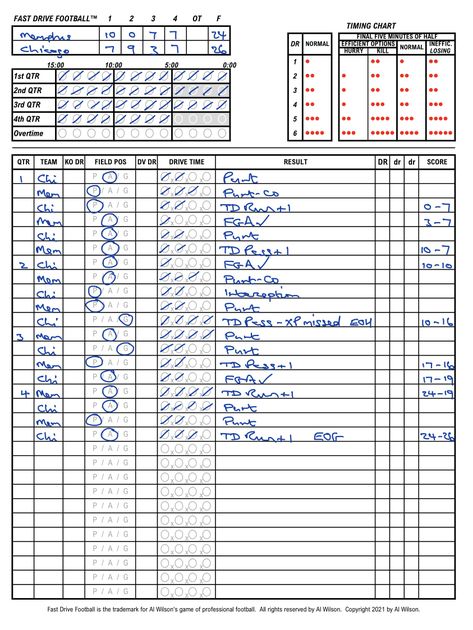 FAST DRIVE FOOTBALL™ 1 2 3 4 OT F
Memphis 10 0 7 7 24
Chicago 7 9 3 7 26
15:00 10:00 5:00 0:00
1st QTR
2nd QTR
3rd QTR
4th QTR
Overtime
TIMING CHART
FINAL FIVE MINUTES OF HALF
DR NORMAL EFFICIENT OPTIONS NORMAL INEFFIC.
HURRY KILL LOSING
1
2
3
4
5
6
QTR TEAM KO DR FIELD POS DV DR DRIVE TIME RESULT DR dr dr SCORE
1 Chi P / A / G Punt
Mem P / A / G Punt-Co
Chi P / A / G TD Run+1 0-7
Mem P / A / G FGA✓ 3-7
Chi P / A / G Punt
Mem P / A / G TD Pass+1 10-7
2 Chi P / A / G FGA✓ 10-10
Mem P / A / G Punt-Co
Chi P / A / G Interception
Mem P / A / G Punt
Chi P / A / G TD Pass-XP missed EOH 10-16
3 Mem P / A / G Punt
Chi P / A / G Punt
Mem P / A / G TD Pass+1 17-16
Chi P / A / G FGA✓ 17-19
4 Mem P / A / G TD Run+1 24-19
Chi P / A / G Punt
Mem P / A / G Punt
Chi P / A / G TD Run+1 EOG 24-26
P / A / G
P / A / G
P / A / G
P / A / G
P / A / G
P / A / G
P / A / G
P / A / G
P / A / G
P / A / G
Fast Drive Football is the trademark for Al Wilson's game of professional football. All rights reserved by Al Wilson. Copyright 2021 by Al Wilson.